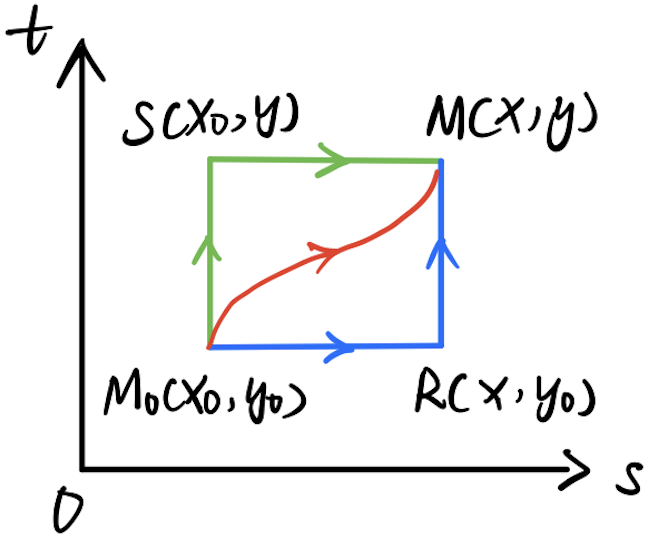 t
S(x₀,y) M(x,y)
M₀(x₀,y₀) R(x,y₀)
0 s